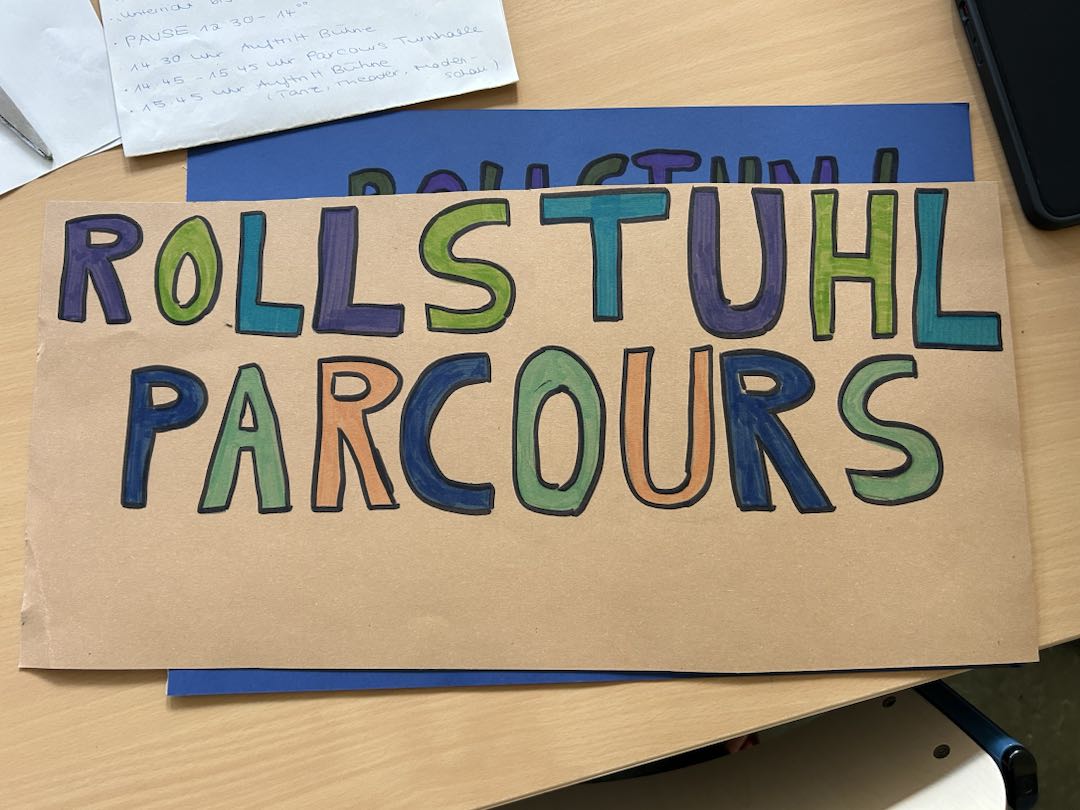 Unterricht bis
· PAUSE 12.30 - 14⁰⁰
14.30 Uhr Auftritt Bühne
· 14.45 - 15.45 Uhr Parcours Turnhalle
· 15.45 Uhr Auftritt Bühne
(Tanz, Theater, Moden-
schau)
ROLLSTUHL
ROLLSTUHL
PARCOURS